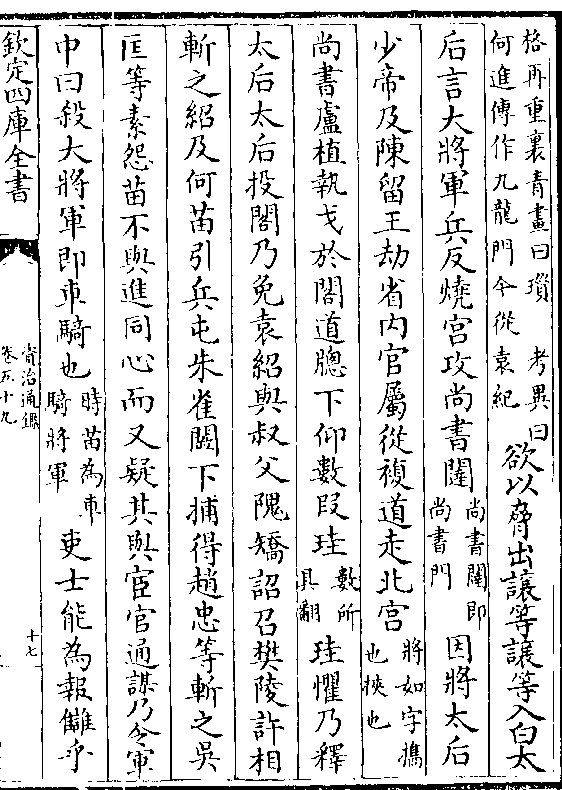 格再重裏青畫曰瑣　考異曰
何進傳作九龍門今從袁紀
欲以脅出讓等讓等入白太
后言大將軍兵反燒宫攻尚書闥尚書闥即尚書門因將太后
少帝及陳留王劫省内官屬從複道走北宫將如字攜也挾也
尚書盧植執戈於閤道牕下仰數段珪數所具翻珪懼乃釋
太后太后投閤乃免袁紹與叔父隗矯詔召樊陵許相
斬之紹及何苗引兵屯朱雀闕下捕得趙忠等斬之吳
匡等素怨苗不與進同心而又疑其與宦官通謀乃令軍
中曰殺大將軍即車騎也時苗為車騎將軍吏士能為報讎乎
欽定四庫全書
資治通鑑
卷五十九
十七